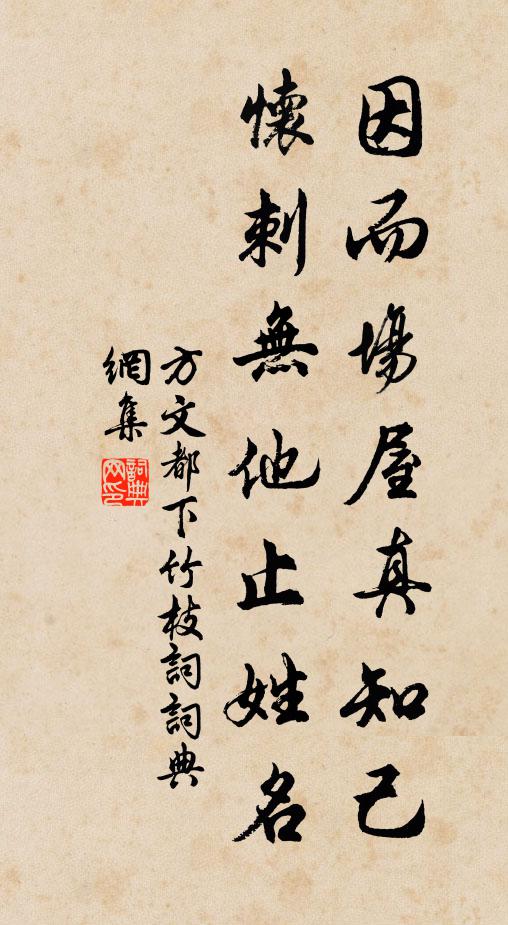 因而場屋真知己
懷刺無他止姓名
方文都下竹枝詞詞典
網集
詞典网印